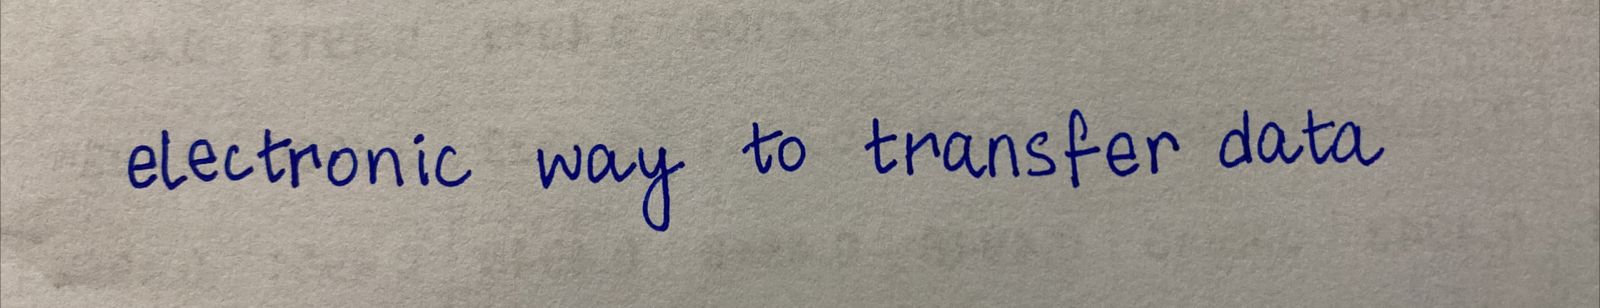 electronic way to transfer data